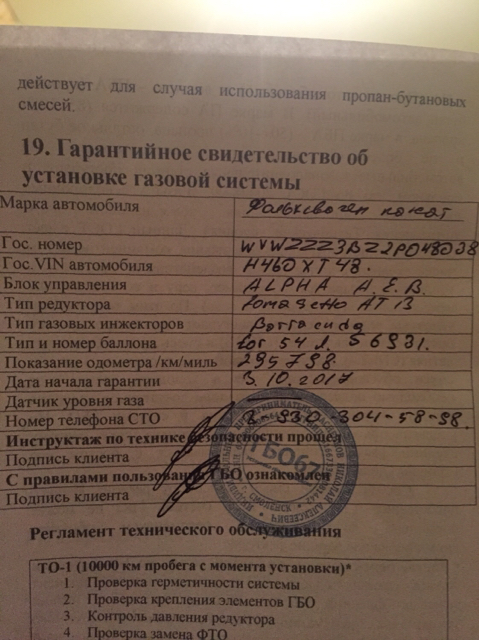 действует для случая использования пропан-бутановых
смесей.
19. Гарантийное свидетельство об
установке газовой системы
Марка автомобиля Фольксваген пасат
Гос. номер WVWZZZ3BZ2P048038
Гос.VIN автомобиля Н460ХТ48.
Блок управления ALPHA A.E.B.
Тип редуктора Tomasetto AT 13
Тип газовых инжекторов Barracuda
Тип и номер баллона 54 л. 56931.
Показание одометра /км/миль 295798.
Дата начала гарантии 3.10.2017
Датчик уровня газа
Номер телефона СТО 8-930-304-58-98.
Инструктаж по технике безопасности прошел
Подпись клиента
С правилами пользования ГБО ознакомлен
Подпись клиента
ГБО67
СМОЛЕНСК
Регламент технического обслуживания
ТО-1 (10000 км пробега с момента установки)*
1. Проверка герметичности системы
2. Проверка крепления элементов ГБО
3. Контроль давления редуктора
4. Проверка замена ФТО